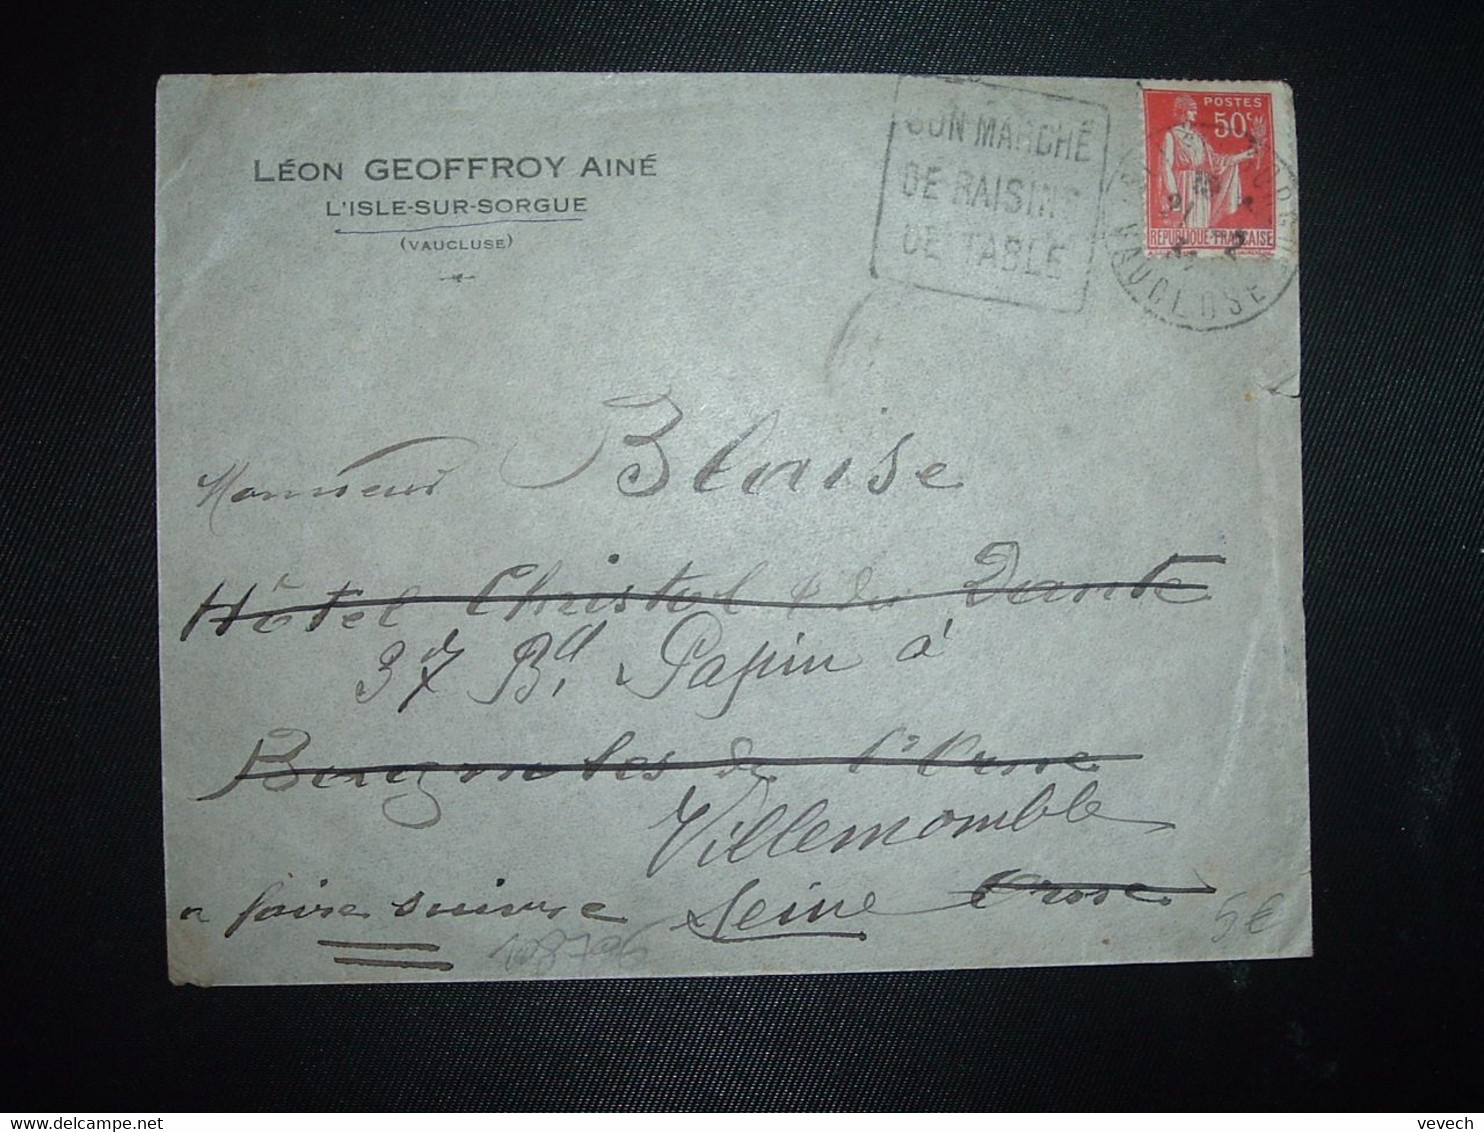 LÉON GEOFFROY AINÉ
L'ISLE-SUR-SORGUE
(VAUCLUSE)
SON MARCHÉ
DE RAISINS
DE TABLE
POSTES
50c
REPUBLIQUE FRANCAISE
VAUCLUSE
Monsieur Blaise
Hôtel Christol & du Dante
37 Bd. Papin à
de l'Orne
Villemomble
a faire suivre Seine Orne
5€
vevech